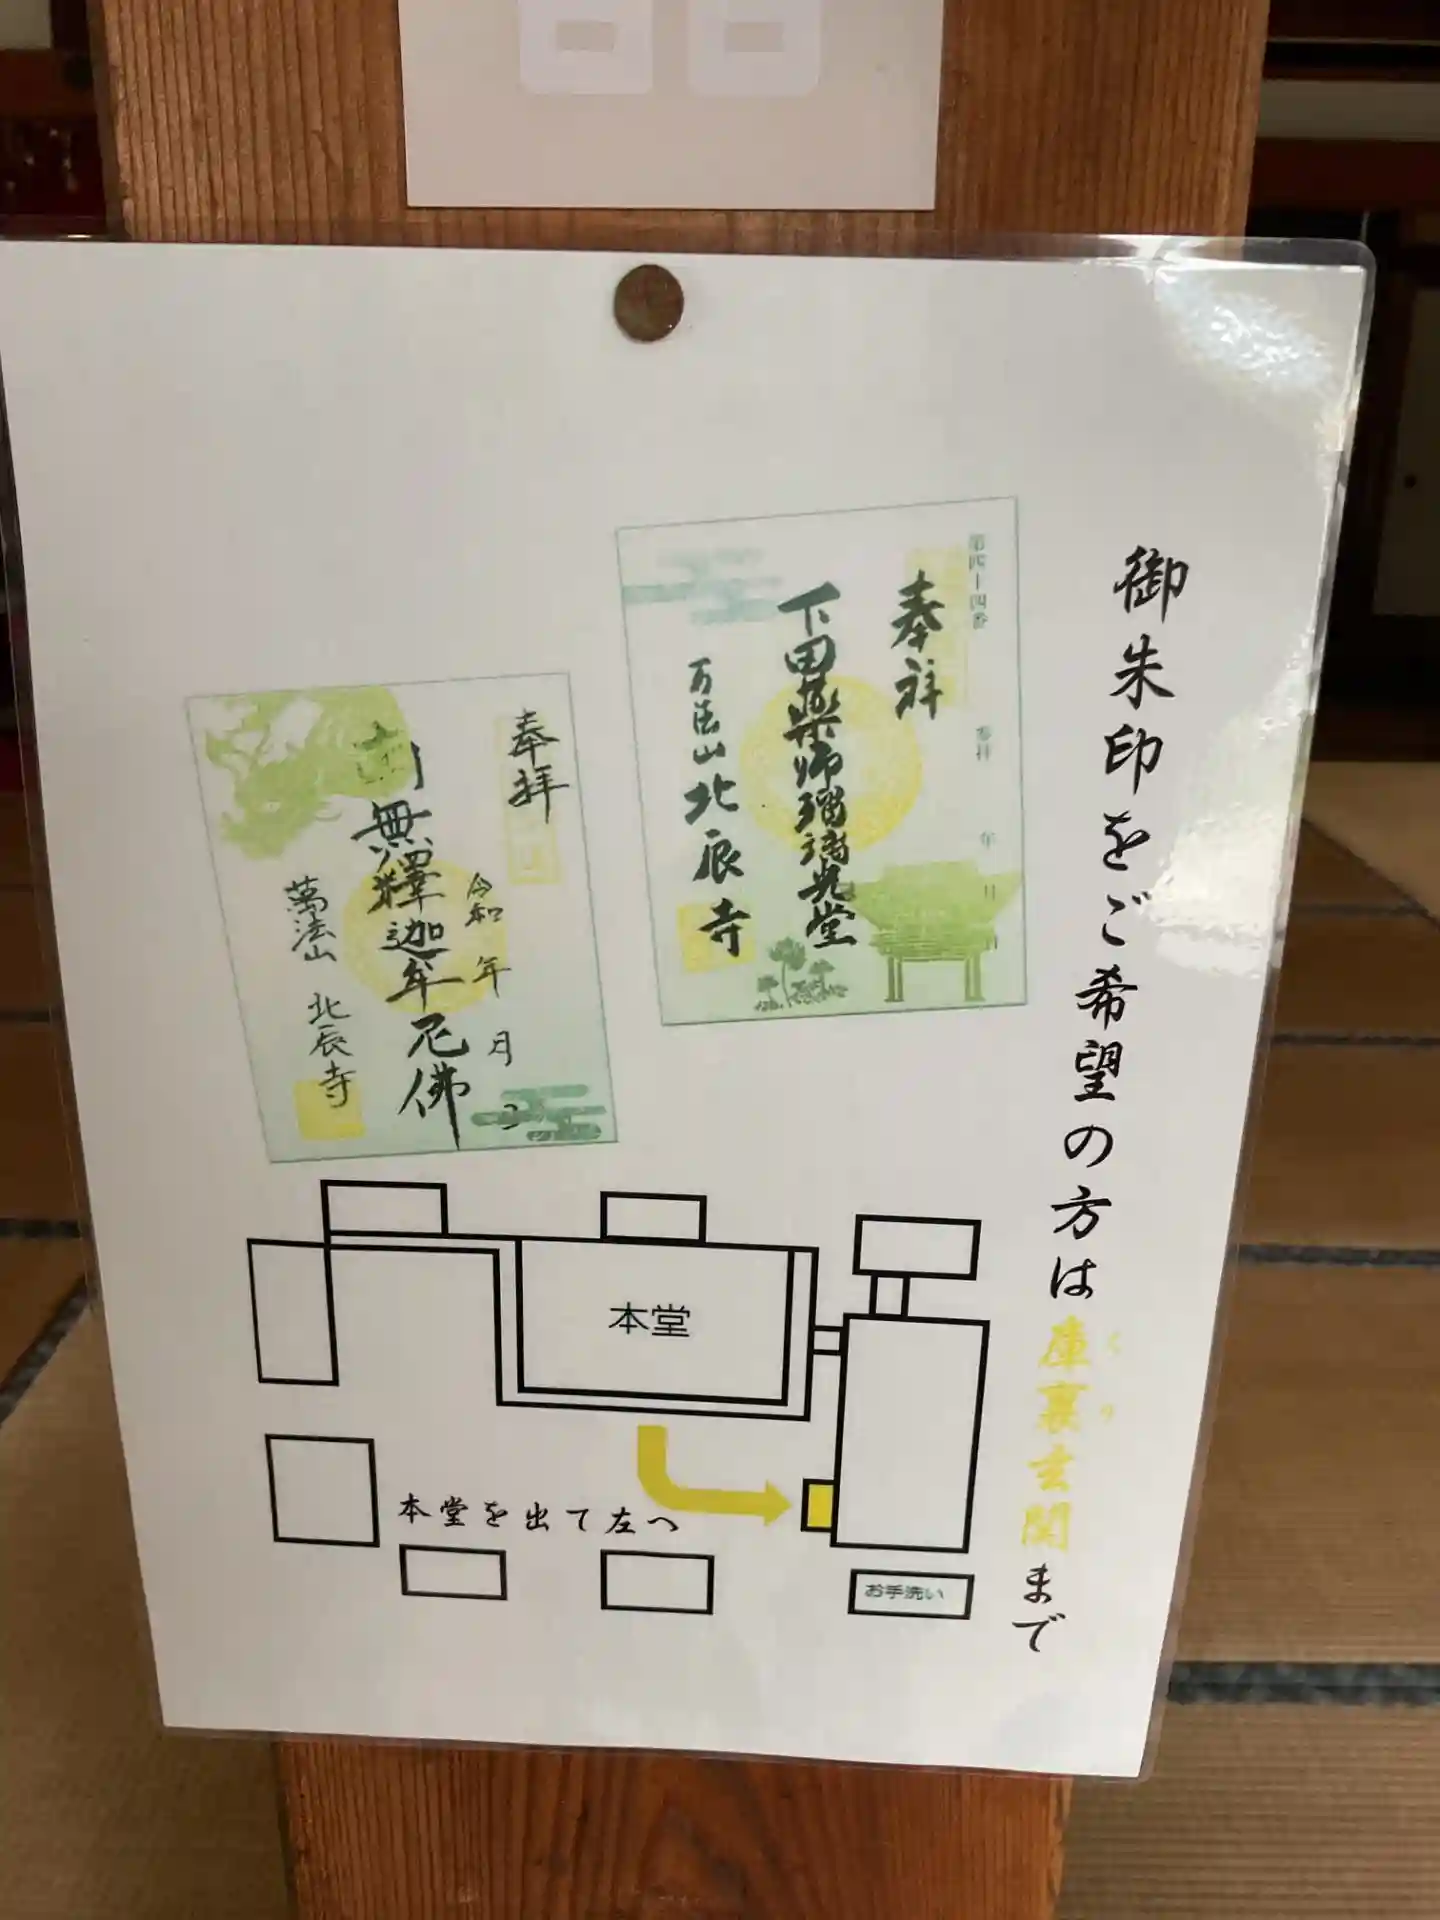 御朱印をご希望の方は庫裏玄関まで
くり
第四十四番
奉拝
参拝 年 月 日
下田薬師瑠璃光堂
万法山北辰寺
奉拝
令和 年 月 日
南無釋迦牟尼佛
萬法山 北辰寺
本堂
本堂を出て左へ
お手洗い